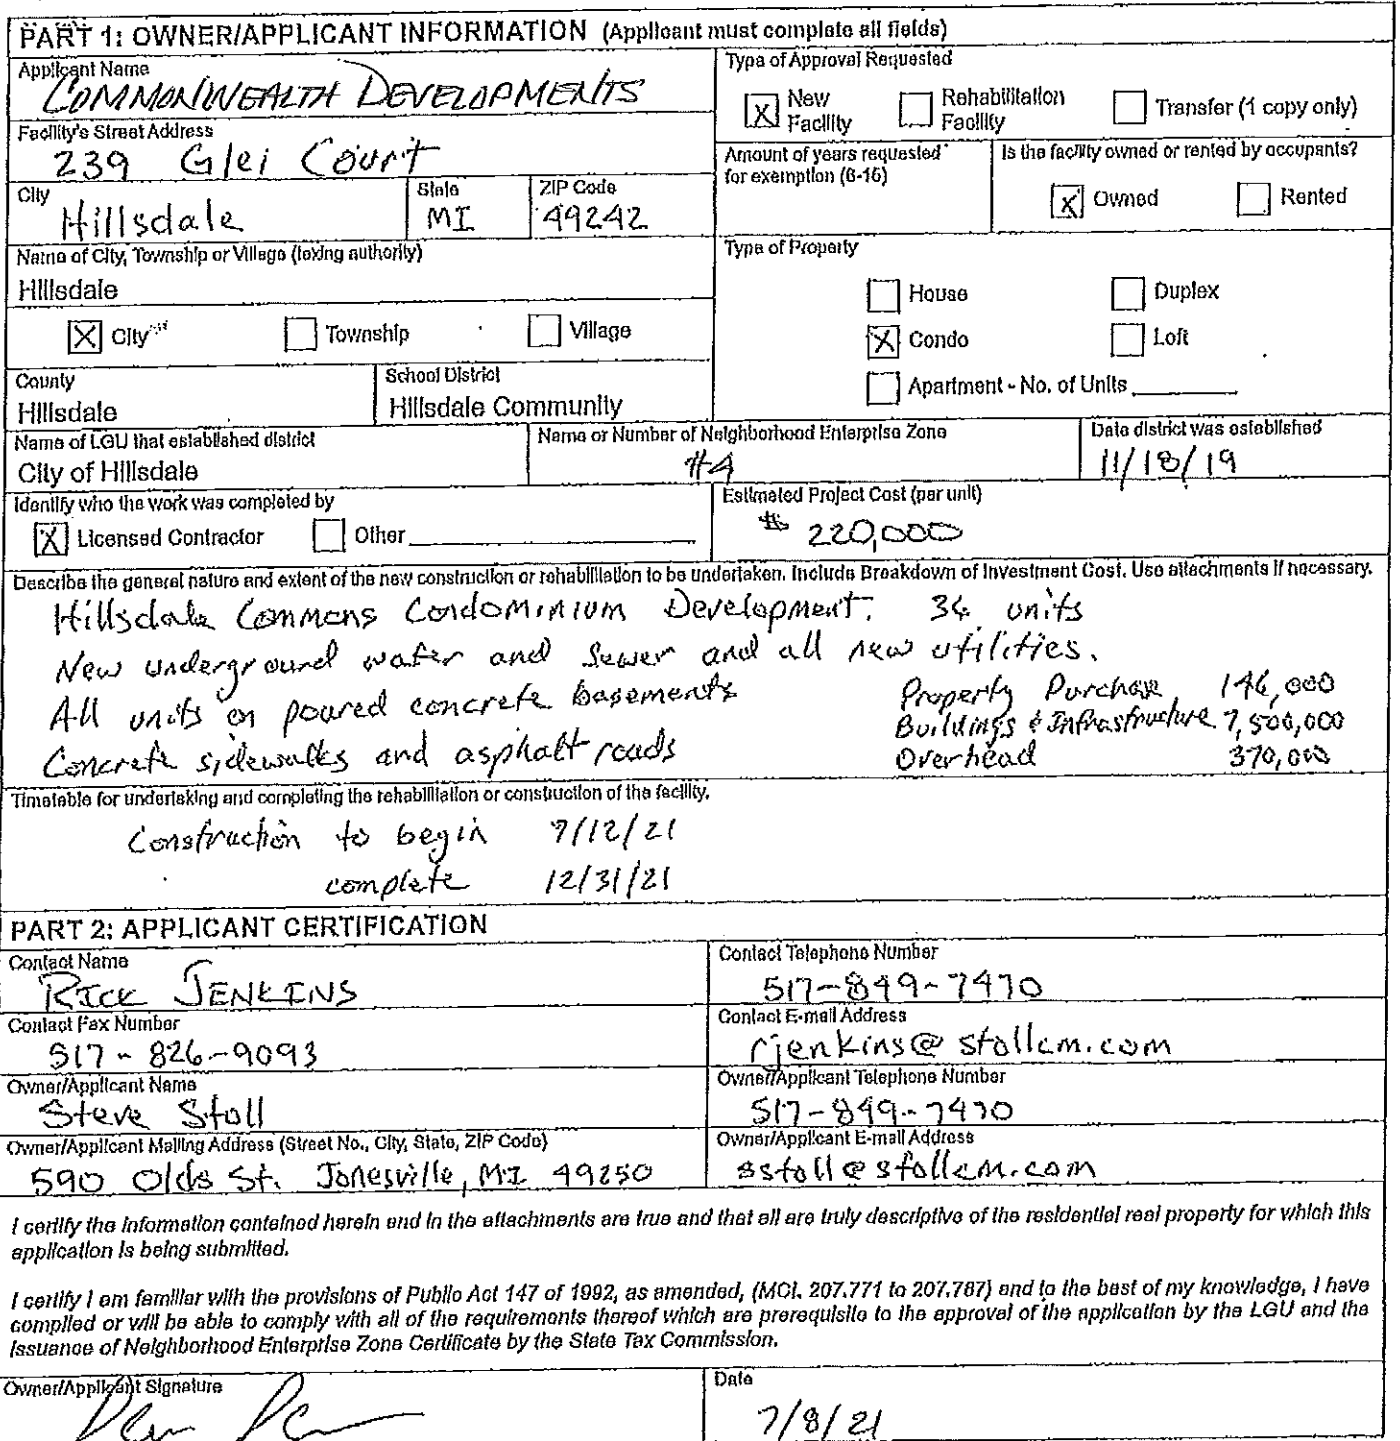 PART 1: OWNER/APPLICANT INFORMATION (Applicant must complete all fields)
Applicant Name
COMMONWEALTH DEVELOPMENTS
Type of Approval Requested
[X] New Facility [ ] Rehabilitation Facility [ ] Transfer (1 copy only)
Facility's Street Address
239 Glei Court
Amount of years requested for exemption (6-15)
Is the facility owned or rented by occupants?
[X] Owned [ ] Rented
City
Hillsdale
State
MI
ZIP Code
49242
Name of City, Township or Village (taxing authority)
Hillsdale
[X] City [ ] Township [ ] Village
Type of Property
[ ] House [ ] Duplex
[X] Condo [ ] Loft
[ ] Apartment - No. of Units
County
Hillsdale
School District
Hillsdale Community
Name of LGU that established district
City of Hillsdale
Name or Number of Neighborhood Enterprise Zone
#4
Date district was established
11/18/19
Identify who the work was completed by
[X] Licensed Contractor [ ] Other
Estimated Project Cost (per unit)
$ 220,000
Describe the general nature and extent of the new construction or rehabilitation to be undertaken. Include Breakdown of Investment Cost. Use attachments if necessary.
Hillsdale Commons Condominium Development. units
New underground water and sewer and all new utilities.
All units on poured concrete basements
Property Purchase 146,000
Buildings & Infrastructure 7,500,000
Concrete sidewalks and asphalt roads
Overhead 370,000
Timetable for undertaking and completing the rehabilitation or construction of the facility.
Construction to begin 7/12/21
complete 12/31/21
PART 2: APPLICANT CERTIFICATION
Contact Name
RICK JENKINS
Contact Telephone Number
517-849-7470
Contact Fax Number
517-826-9093
Contact E-mail Address
rjenkins@stollcm.com
Owner/Applicant Name
Steve Stoll
Owner/Applicant Telephone Number
517-849-7470
Owner/Applicant Mailing Address (Street No., City, State, ZIP Code)
590 Olds St. Jonesville, MI 49250
Owner/Applicant E-mail Address
sstoll@stollcm.com
I certify the information contained herein and in the attachments are true and that all are truly descriptive of the residential real property for which this
application is being submitted.
I certify I am familiar with the provisions of Public Act 147 of 1992, as amended, (MCL 207.771 to 207.787) and to the best of my knowledge, I have
complied or will be able to comply with all of the requirements thereof which are prerequisite to the approval of the application by the LGU and the
issuance of Neighborhood Enterprise Zone Certificate by the State Tax Commission.
Owner/Applicant Signature
Date
7/8/21